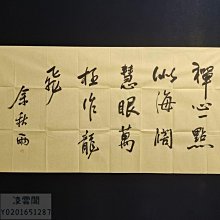 禪心一點
似海闊
慧眼萬
恒作龍
飛
余秋雨
淩雲閣
Y0201651287